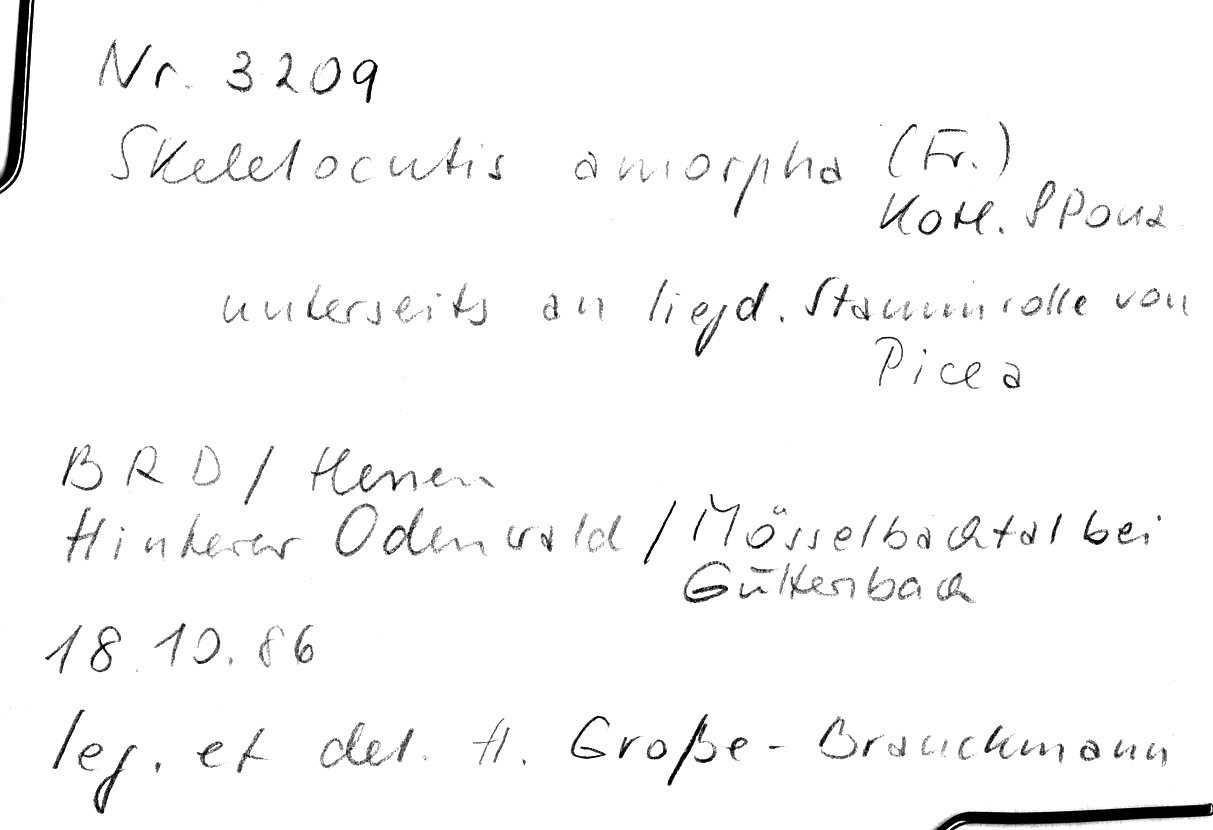 Nr. 3209
Skeletocutis amorpha (Fr.)
Kotl. & Pouz.
unterseits an liegd. Stammrolle von
Picea
BRD / Hessen
Hinterer Odenwald / Mösselbachtal bei
Güttersbach
18.10.86
leg. et det. H. Große-Brauckmann